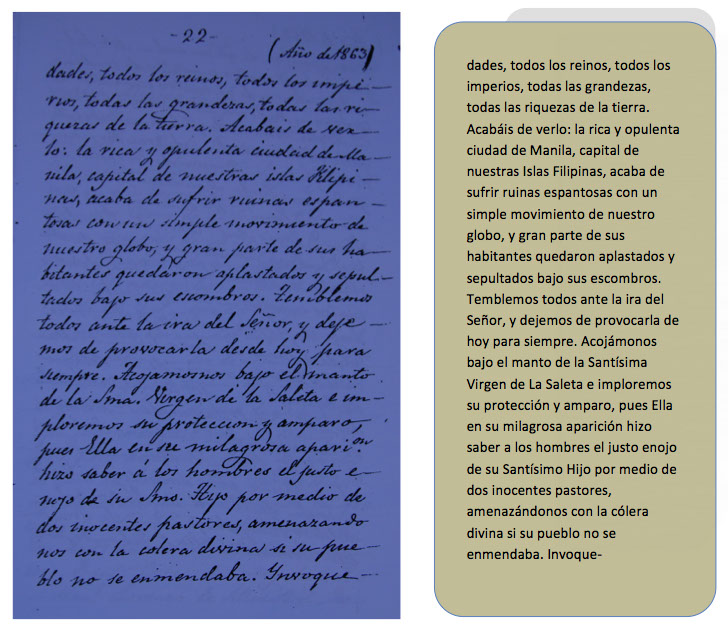 -22-
(Año de 1863)
dades, todos los reinos, todos los impe-
rios, todas las grandezas, todas las ri-
quezas de la tierra. Acabais de ver-
lo: la rica y opulenta ciudad de Ma-
nila, capital de nuestras islas Filipi-
nas, acaba de sufrir ruinas espan-
tosas con un simple movimiento de
nuestro globo, y gran parte de sus ha-
bitantes quedaron aplastados y sepul-
tados bajo sus escombros. Temblemos
todos ante la ira del Señor, y deje-
mos de provocarla desde hoy para
siempre. Acojamosnos bajo el manto
de la Sma. Virgen de la Saleta e im-
ploremos su proteccion y amparo,
pues Ella en su milagrosa aparion
hizo saber á los hombres el justo e-
nojo de su Smo. Hijo por medio de
dos inocentes pastores, amenazando
nos con la colera divina si su pue-
blo no se enmendaba. Invoque-
dades, todos los reinos, todos los
imperios, todas las grandezas,
todas las riquezas de la tierra.
Acabáis de verlo: la rica y opulenta
ciudad de Manila, capital de
nuestras Islas Filipinas, acaba de
sufrir ruinas espantosas con un
simple movimiento de nuestro
globo, y gran parte de sus
habitantes quedaron aplastados y
sepultados bajo sus escombros.
Temblemos todos ante la ira del
Señor, y dejemos de provocarla de
hoy para siempre. Acojámonos
bajo el manto de la Santísima
Virgen de La Saleta e imploremos
su protección y amparo, pues Ella
en su milagrosa aparición hizo
saber a los hombres el justo enojo
de su Santísimo Hijo por medio de
dos inocentes pastores,
amenazándonos con la cólera
divina si su pueblo no se
enmendaba. Invoque-